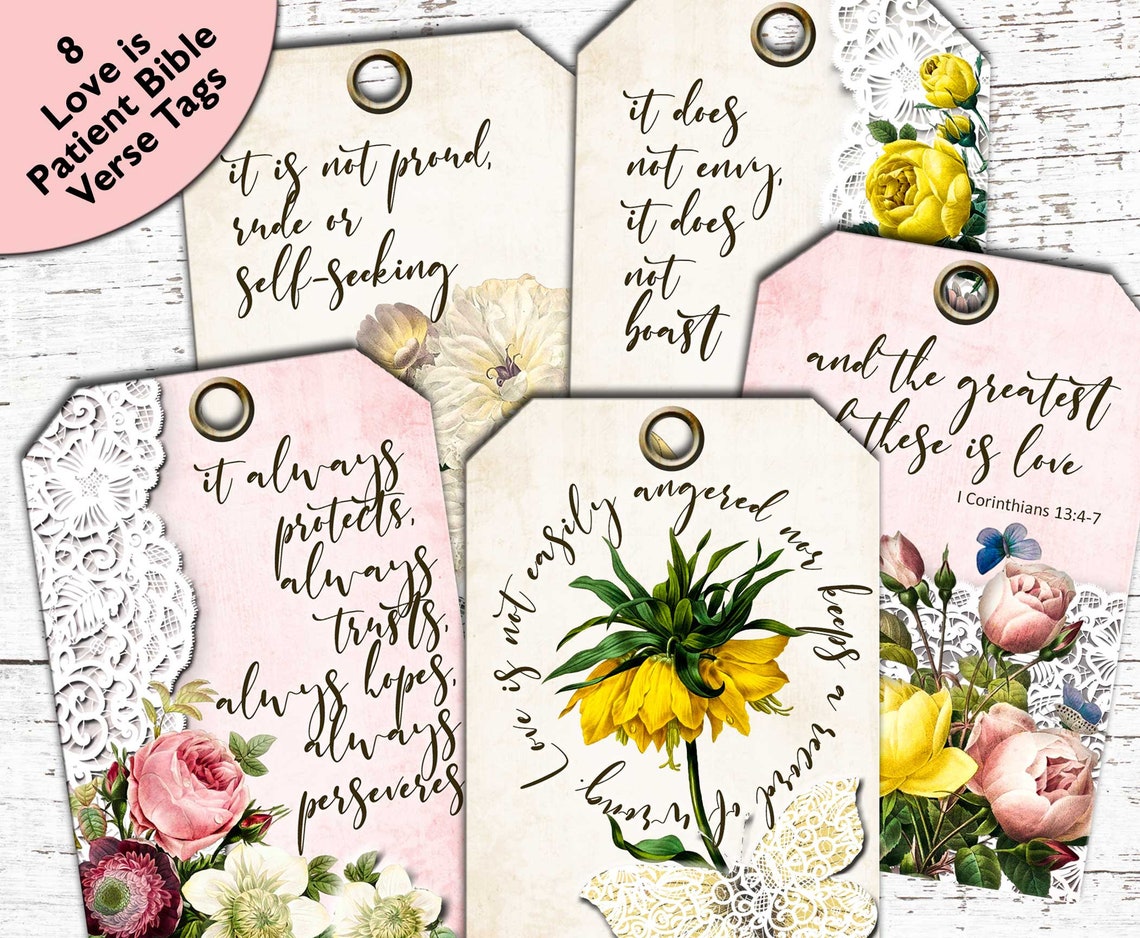 8
Love is
Patient Bible
Verse Tags
it is not proud,
rude or
self-seeking
it does
not envy,
it does
not
boast
and the greatest
these is love
I Corinthians 13:4-7
it always
protects,
always
trusts,
always hopes,
always
perseveres
Love is not easily angered nor keeps a record of wrong.